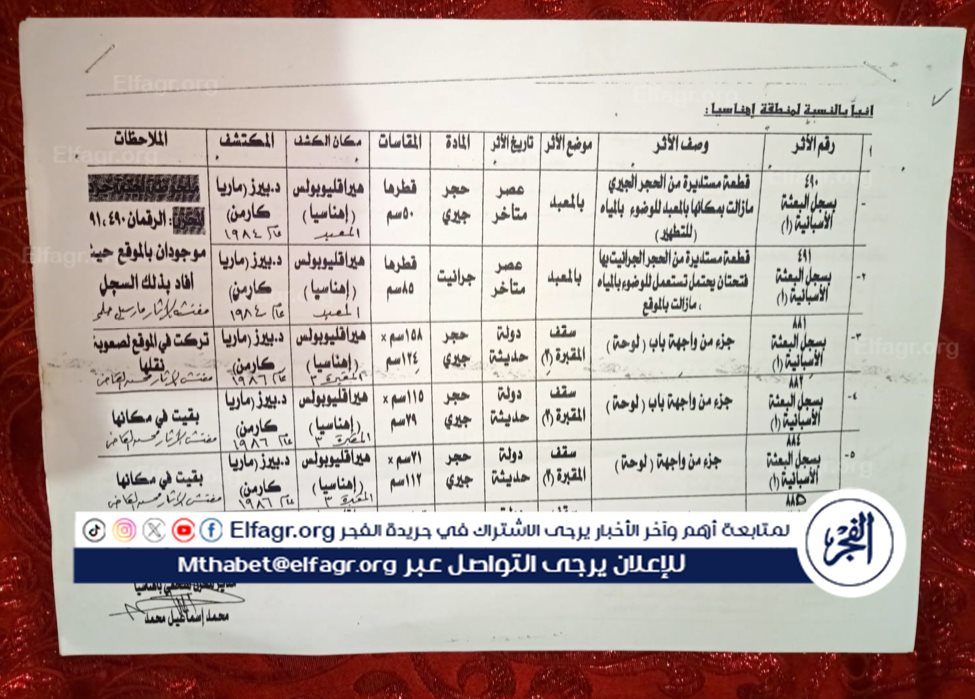 انياً بالنسبة لمنطقة إهناسيا :
رقم الأثر | وصف الأثر | موضع الأثر | تاريخ الأثر | المادة | المقاسات | مكان الكشف | المكتشف | الملاحظات
٤٩٠ بسجل البعثة الأسبانية (١) | قطعة مستديرة من الحجر الجيري مازالت بمكانها بالمعبد للوضوء بالمياه (للتطهير) | بالمعبد | عصر متأخر | حجر جيري | قطرها ٥٠سم | هيراقليوبولس (إهناسيا) المعبد | د.بيرز (ماريا كارمن) عام ١٩٨٤ | : الرقمان ٤٩٠، ٩١
٢- ٤٩١ بسجل البعثة الأسبانية (١) | قطعة مستديرة من الحجر الجرانيت بها فتحتان يحتمل تستعمل للوضوء بالمياه ، مازالت بالموقع | بالمعبد | عصر متأخر | جرانيت | قطرها ٨٥سم | هيراقليوبولس (إهناسيا) المعبد | د.بيرز (ماريا كارمن) عام ١٩٨٤ | موجودان بالموقع حيث أفاد بذلك السجل مفتش الآثار
٣- ٨٨١ بسجل البعثة الأسبانية (١) | جزء من واجهة باب (لوحة) | سقف المقبرة (٣) | دولة حديثة | حجر جيري | ١٥٨سم × ١٢٤سم | هيراقليوبولس (إهناسيا) المقبرة ٣ | د.بيرز (ماريا كارمن) عام ١٩٨٦ | تركت في الموقع لصعوبة نقلها مفتش الآثار
٤- ٨٨٢ بسجل البعثة الأسبانية (١) | جزء من واجهة باب (لوحة) | سقف المقبرة (٣) | دولة حديثة | حجر جيري | ١١٥سم × ٢٩سم | هيراقليوبولس (إهناسيا) المقبرة ٣ | د.بيرز (ماريا كارمن) عام ١٩٨٦ | بقيت في مكانها مفتش الآثار
٥- ٨٨٤ بسجل البعثة الأسبانية (١) | جزء من واجهة (لوحة) | سقف المقبرة (٣) | دولة حديثة | حجر جيري | ٢١سم × ١١٢سم | هيراقليوبولس (إهناسيا) المقبرة ٣ | د.بيرز (ماريا كارمن) عام ١٩٨٦ | بقيت في مكانها مفتش الآثار
٨٨٥
لمتابعة أهم وآخر الأخبار يرجى الاشتراك في جريدة الفجر Elfagr.org
للإعلان يرجى التواصل عبر Mthabet@elfagr.org
الفجر
محمد إسماعيل محمد
Elfagr.org